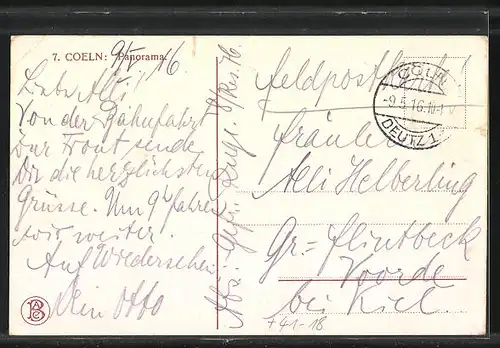 7. COELN: Panorama.
9/V. 16
Liebe Alli!
Von der Bahnfahrt
zur Front sende
Dir die herzlichsten
Grüsse. Um 9h fahren
wir weiter.
Auf Wiedersehen
Dein Otto
Abs.: Gefr. 9/Res. 76.
Feldpostkarte!
CÖLN
-9.5.16.10-11
DEUTZ 1
Fräulein
Alli Helberling
Gr.=Flintbeck
Voorde
bei Kiel.
+41-18